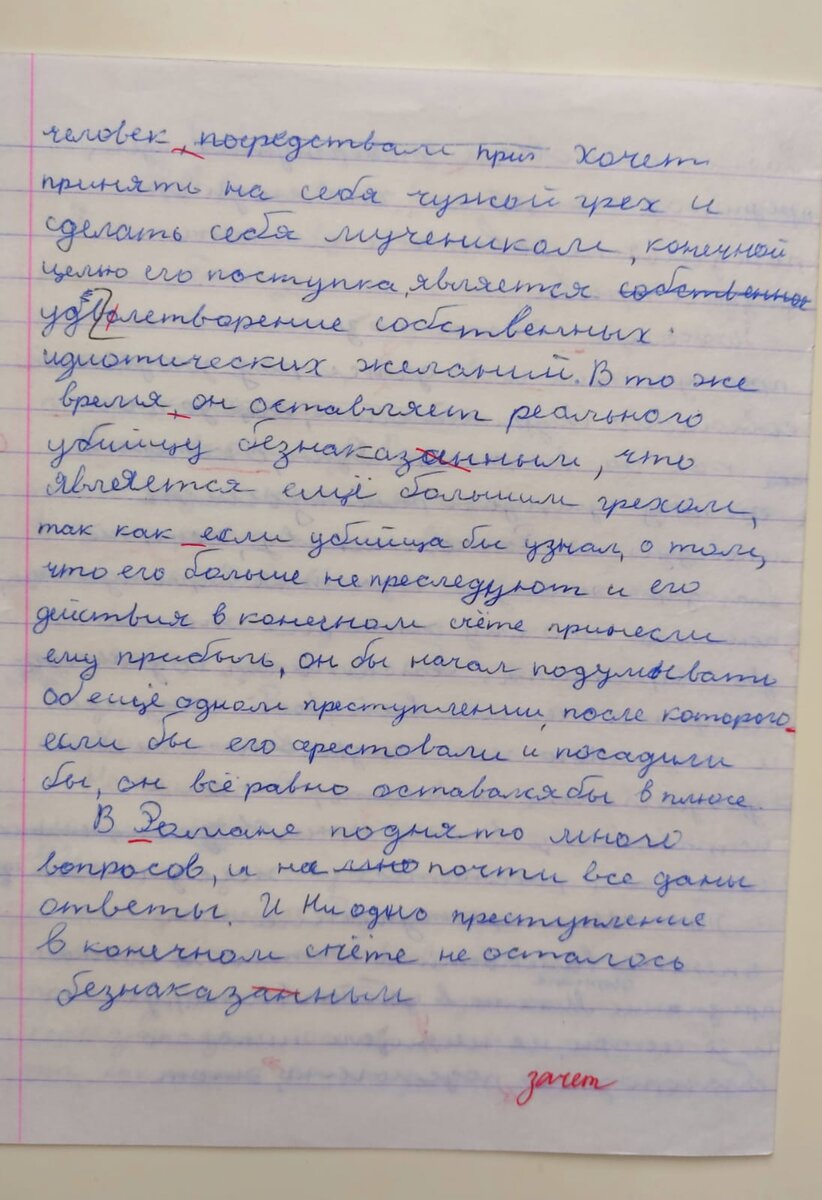 человек, посредствам при хочет
принять на себя чужой грех и
сделать себя мучеником, конечной
целью его поступка, является собственное
удовлетворение собственных
идиотических желаний. В то же
время, он оставляет реального
убийцу безнаказанным, что
является ещё большим грехом,
так как если убийца бы узнал, о том,
что его больше не преследуют и его
действия в конечном счёте принесли
ему прибыль, он бы начал подумывать
об ещё одном преступлении, после которого
если бы его арестовали и посадили
бы, он всё равно оставался бы в плюсе.
В Романе поднято много
вопросов, и на почти все даны
ответы. И Ни одно преступление
в конечном счёте не осталось
безнаказанным
зачет